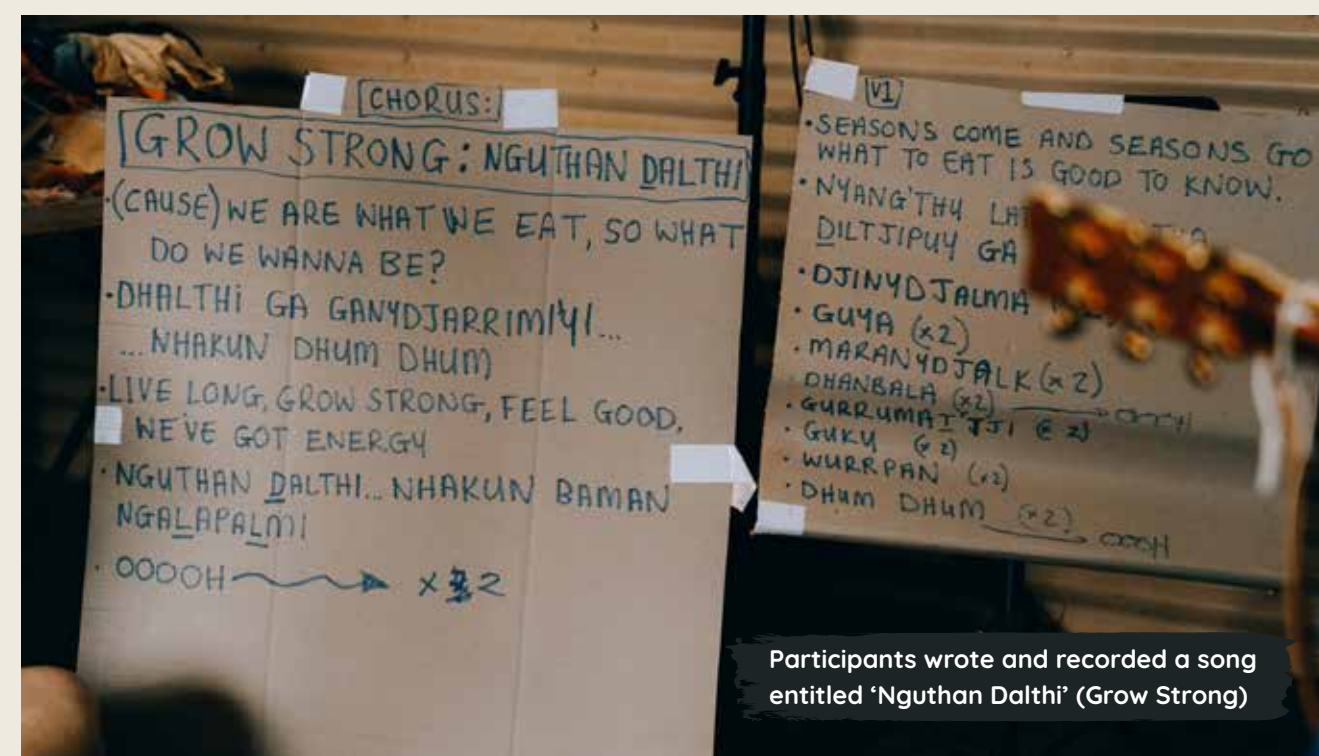 [CHORUS:]
GROW STRONG: NGUTHAN ḎALTHI
•(CAUSE) WE ARE WHAT WE EAT, SO WHAT
DO WE WANNA BE?
•DHALTHi GA GANYDJARRIMIYI...
...NHAKUN DHUM DHUM
•LIVE LONG, GROW STRONG, FEEL GOOD,
WE'VE GOT ENERGY
•NGUTHAN ḎALTHI... NHAKUN BAMAN
NGAḺAPAḺMI
• OOOOH x 2
V1
•SEASONS COME AND SEASONS GO
WHAT TO EAT IS GOOD TO KNOW.
•NYANG'THU
ḎILTJIPUY GA
•DJINYDJALMA
• GUYA (x2)
• MARANYDJALK (x2)
• DHANBALA (x2) OOOH
• (x2)
• GUKU (x2)
• WURRPAN (x2)
• DHUM DHUM (x2) OOOH
Participants wrote and recorded a song
entitled ‘Nguthan Dalthi’ (Grow Strong)